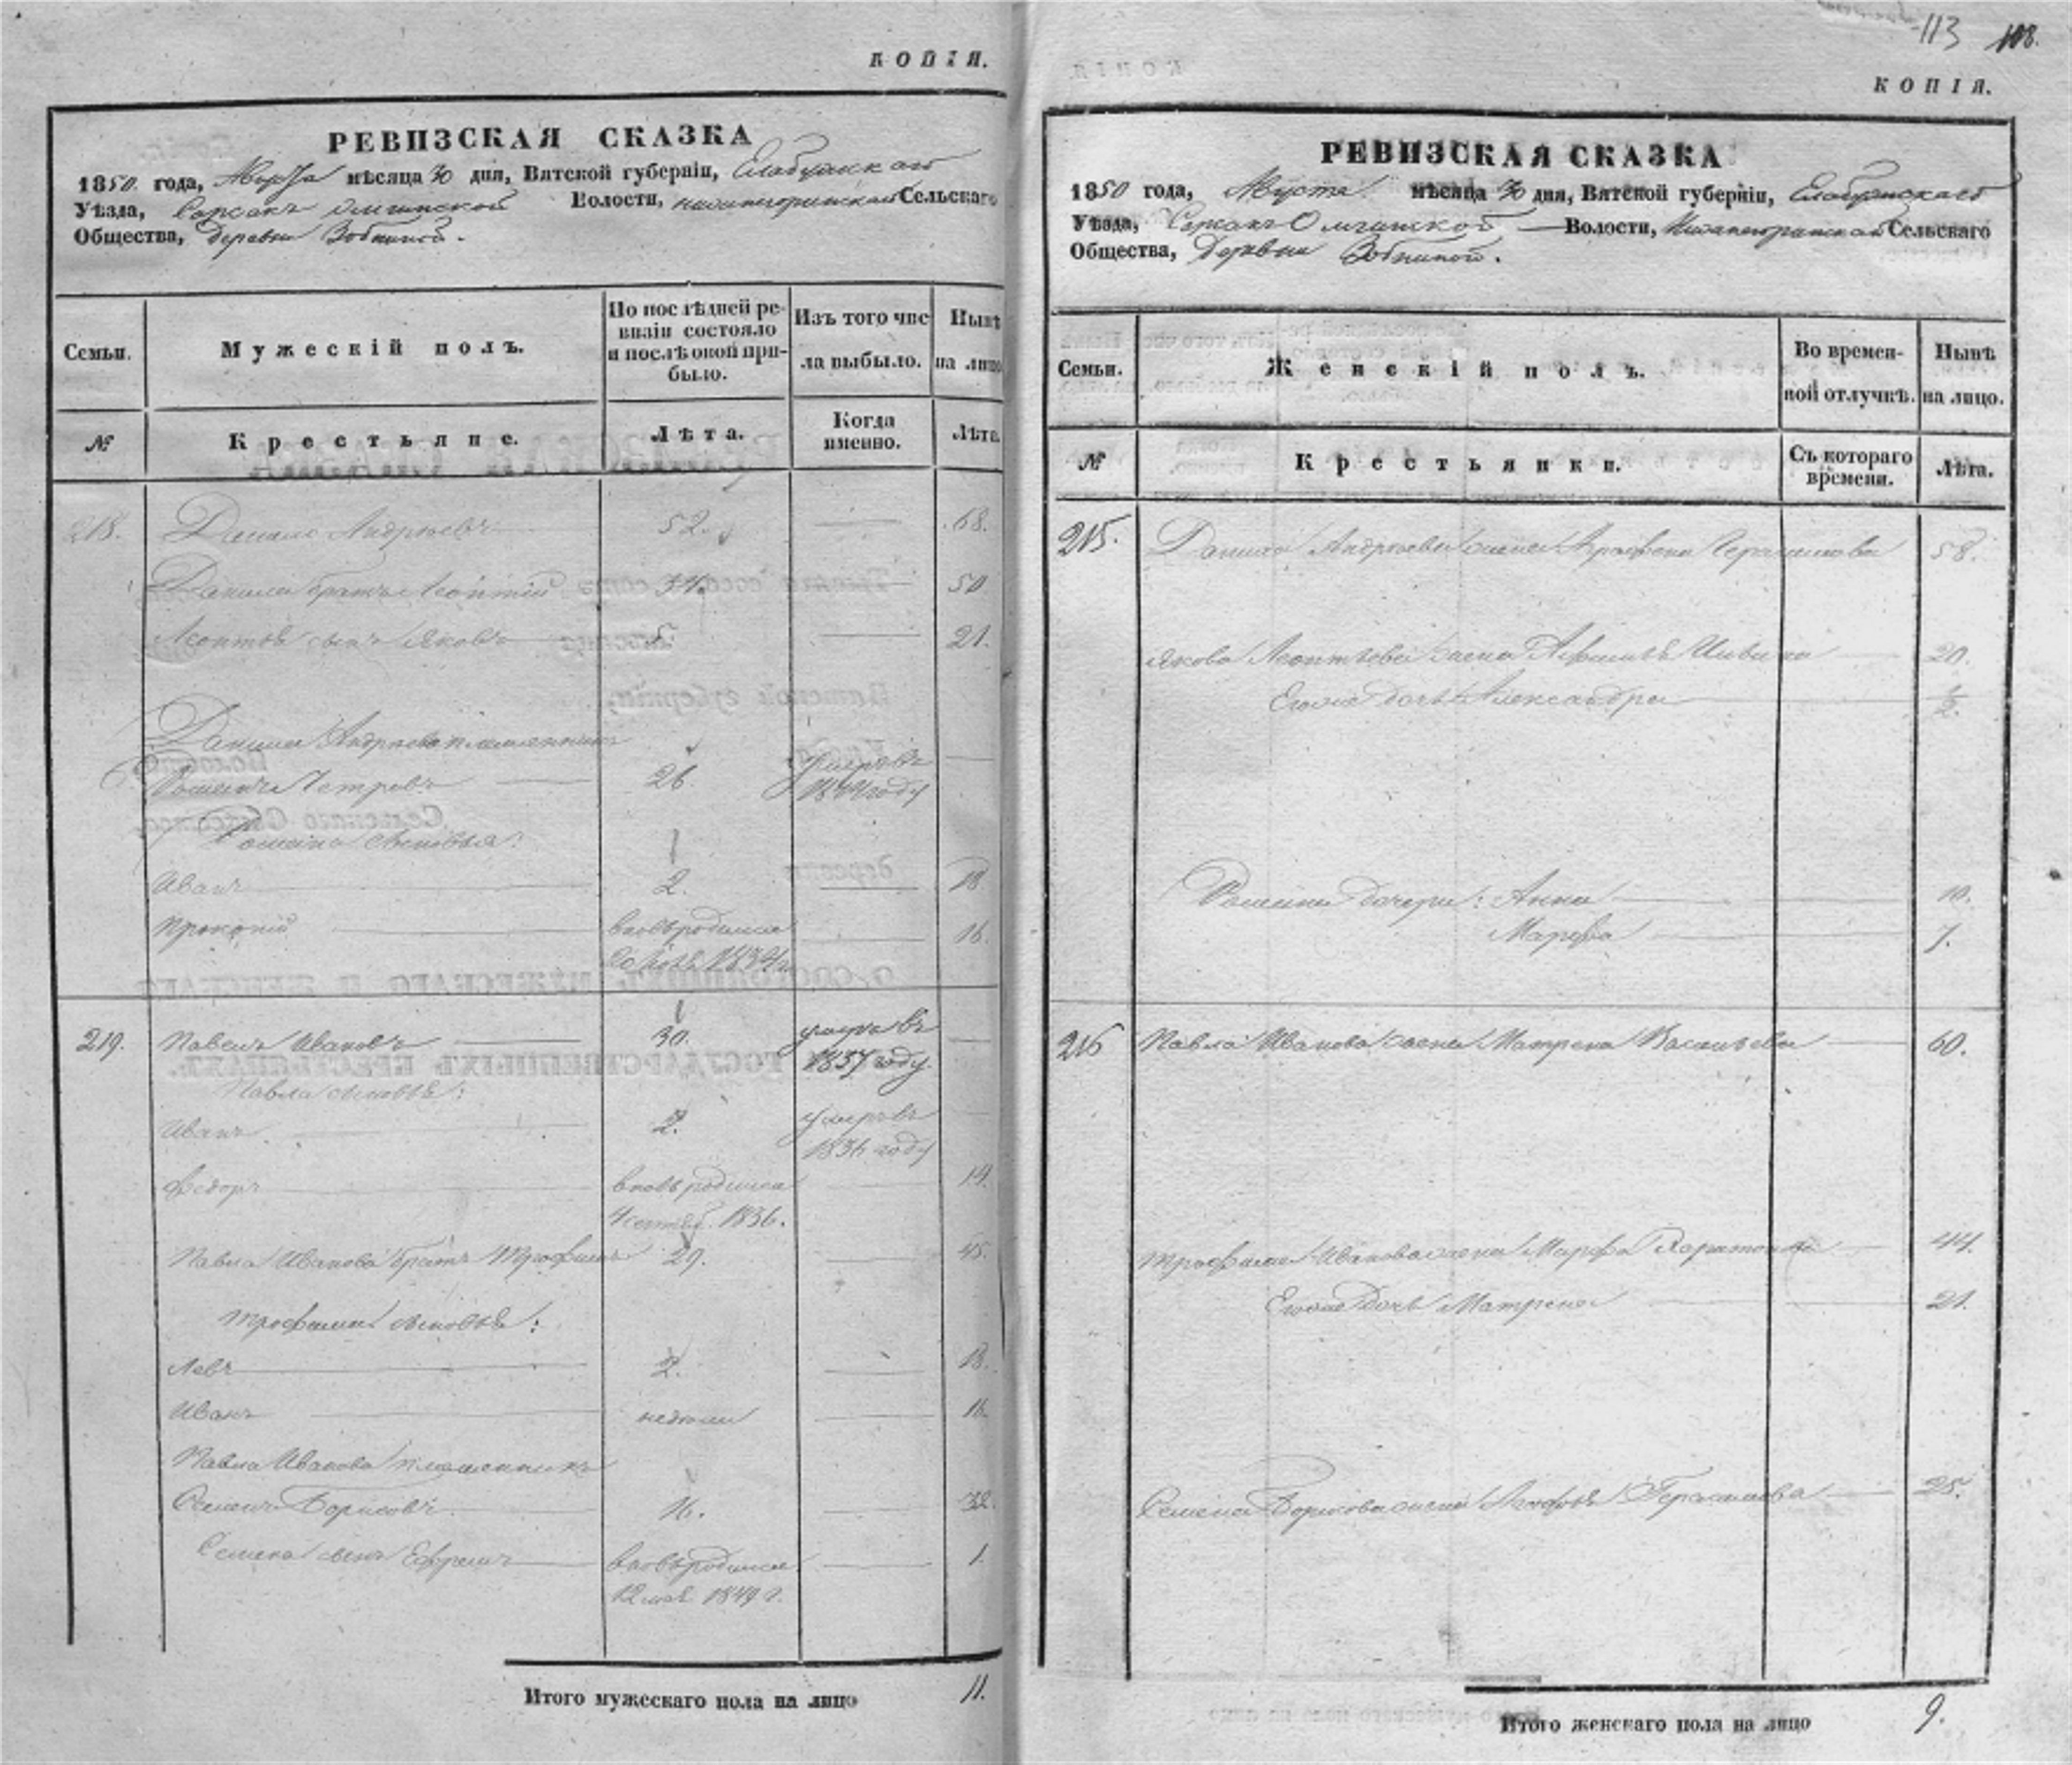 КОПІЯ.
РЕВИЗСКАЯ СКАЗКА
1850 года, Августа мѣсяца 30 дня, Вятской губерніи, Елабужскаго
Уѣзда, Сарсакъ Омгинской Волости, Сельскаго
Общества, деревни Зобниной.
Семьи. Мужескій полъ. По послѣдней ревизіи состояло и послѣ оной прибыло. Изъ того числа выбыло. Нынѣ на лицо
№ Крестьяне. Лѣта. Когда именно. Лѣта.
218. Данило Андреевъ 52. 68.
Данила братъ Леонтій 34. 50
Леонтья сынъ Яковъ 5. 21.
Данила Андреева племянникъ
Петровъ 26. умеръ въ 1844 году
сыновья:
Иванъ 2. 18
Прокопій вновьродился 16.
1834
219. Павелъ Ивановъ 30. умеръ въ
1837 году
Павла сыновья:
Иванъ 2. умеръ въ
1836 году
Федоръ вновь родился 14.
4 сентяб. 1836.
Павла Иванова братъ Трофимъ 29. 45.
Трофима сыновья:
Левъ 2. 18.
Иванъ недели 16.
Павла Иванова племянникъ
Семенъ Борисовъ 16. 32.
Семена сынъ Ефремъ вновьродился 1.
12 1849 г.
Итого мужескаго пола на лицо 11.
113 108.
КОПІЯ.
РЕВИЗСКАЯ СКАЗКА
1850 года, Августа мѣсяца 30 дня, Вятской губерніи, Елабужскаго
Уѣзда, Сарсакъ Омгинской Волости, Сельскаго
Общества, Деревни Зобниной.
Семьи. Женскій полъ. Во временной отлучкѣ. Нынѣ на лицо.
№ Крестьянки. Съ котораго времени. Лѣта.
215. Данила Андреева жена Аграфена Герасимова 58.
Якова Леонтьева жена 20.
Егоже дочь Александра ½.
дочери: Анна 10.
Марфа 7.
216 Павла Иванова жена Матрена Васильева 60.
Трофима Иванова жена Марфа Харитонова 44.
Егоже дочь Матрена 21.
Семена Борисова жена Герасимова 25.
Итого женскаго пола на лицо 9.